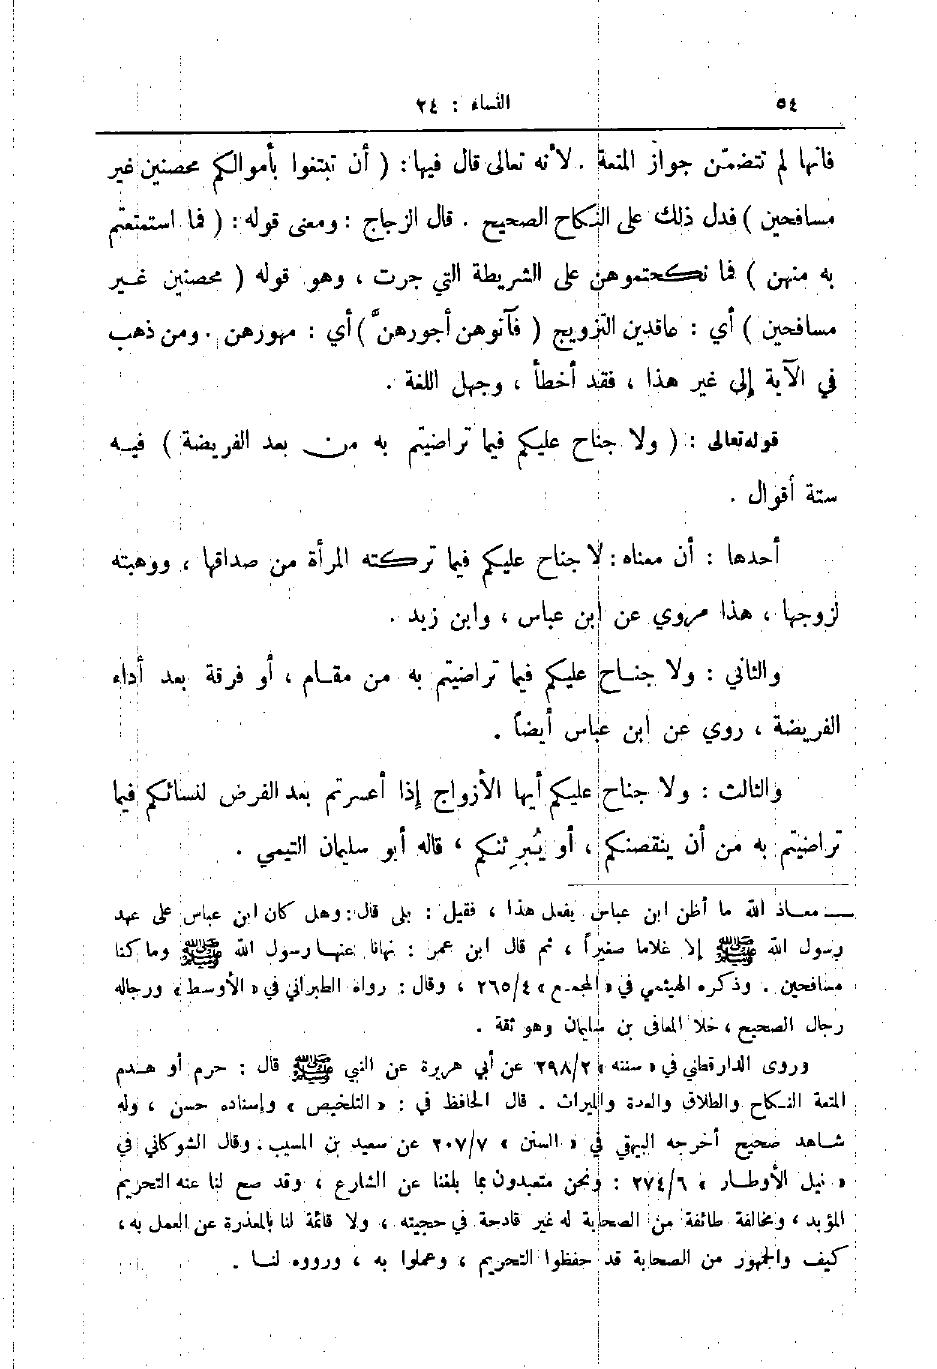 ٥٤
النساء : ٢٤
فانها لم تتضمّن جواز المتعة . لأنه تعالى قال فيها : ( أن تبتغوا بأموالكم محصنين غير
مسافحين ) فدل ذلك على النكاح الصحيح . قال الزجاج : ومعنى قوله : ( فما استمتعتم
به منهن ) فما نكحتموهن على الشريطة التي جرت ، وهو قوله ( محصنين غير
مسافحين ) أي : عاقدين التزويج ( فآتوهن أجورهنَّ ) أي : مهورهن . ومن ذهب
في الآية إلى غير هذا ، فقد أخطأ ، وجهل اللغة .
قوله تعالى : ( ولا جناح عليكم فيما تراضيتم به من بعد الفريضة ) فيه
ستة أقوال .
أحدها : أن معناه : لا جناح عليكم فيما تركته المرأة من صداقها ، ووهبته
لزوجها ، هذا مروي عن ابن عباس ، وابن زيد .
والثاني : ولا جناح عليكم فيما تراضيتم به من مقام ، أو فرقة بعد أداء
الفريضة ، روي عن ابن عباس أيضاً .
والثالث : ولا جناح عليكم أيها الأزواج إذا أعسرتم بعد الفرض لنسائكم فيما
تراضيتم به من أن ينقصنكم ، أو يُبرِئنكم ، قاله أبو سليمان التيمي .
ــ معاذ الله ما أظن ابن عباس يفعل هذا ، فقيل : بلى قال : وهل كان ابن عباس على عهد
رسول الله ﷺ إلا غلاما صغيراً ، ثم قال ابن عمر : نهانا عنها رسول الله ﷺ وما كنا
مسافحين . وذكره الهيثمي في « المجمع » ٢٦٥/٤ ، وقال : رواه الطبراني في « الأوسط » ورجاله
رجال الصحيح ، خلا المعافى بن سليمان وهو ثقة .
وروى الدارقطني في « سننه » ٢٩٨/٢ عن أبي هريرة عن النبي ﷺ قال : حرم أو هدم
المتعة النكاح والطلاق والعدة والميراث . قال الحافظ في : « التلخيص » وإسناده حسن ، وله
شاهد صحيح أخرجه البيهقي في « السنن » ٢٠٧/٧ عن سعيد بن المسيب . وقال الشوكاني في
« نيل الأوطار » ٢٧٤/٦ : ونحن متعبدون بما بلغنا عن الشارع ، وقد صح لنا عنه التحريم
المؤبد ، ومخالفة طائفة من الصحابة له غير قادحة في حجيته ، ولا قائمة لنا بالمعذرة عن العمل به ،
كيف والجمهور من الصحابة قد حفظوا التحريم ، وعملوا به ، ورووه لنا .